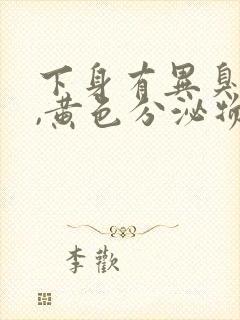 下身有異臭
,黄色分泌物
李歡